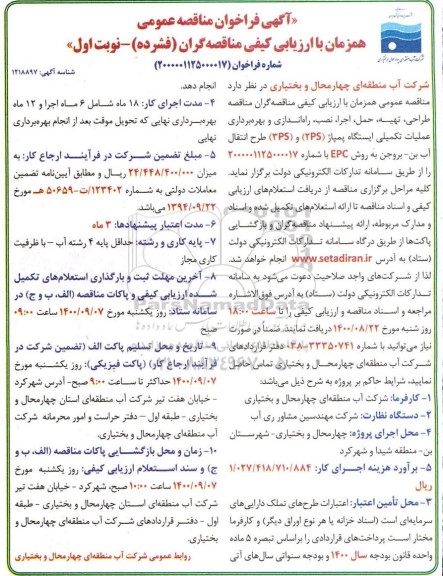 «آگهی فراخوان مناقصه عمومی
همزمان با ارزیابی کیفی مناقصه‌گران (فشرده)–نوبت اول»
شماره فراخوان (۲۰۰۰۰۰۱۱۲۵۰۰۰۰۱۷)
شناسه آگهی: ۱۲۱۸۸۹۷
شرکت آب منطقه‌ای چهارمحال و بختیاری در نظر دارد
مناقصه عمومی همزمان با ارزیابی کیفی مناقصه‌گران مناقصه
طراحی، تهیه، حمل، اجرا، نصب، راه‌اندازی و بهره‌برداری
عملیات تکمیلی ایستگاه پمپاژ (۲PS) و (۳PS) طرح انتقال
آب بن- بروجن به روش EPC با شماره ۲۰۰۰۰۰۱۱۲۵۰۰۰۰۱۷
را از طریق سامانه تدارکات الکترونیکی دولت برگزار نماید.
کلیه مراحل برگزاری مناقصه از دریافت استعلام‌های ارزیابی
کیفی و اسناد مناقصه تا ارائه استعلام‌های تکمیل شده و اسناد
و مدارک مربوطه، ارائه پیشنهاد مناقصه‌گران و بازگشایی
پاکت‌ها از طریق درگاه سامانه تدارکات الکترونیکی دولت
(ستاد) به آدرس www.setadiran.ir انجام خواهد شد.
لذا از شرکت‌های واجد صلاحیت دعوت می‌شود به سامانه
تدارکات الکترونیکی دولت (ستاد) به آدرس فوق‌الاشاره
مراجعه و اسناد مناقصه و ارزیابی کیفی را تا ساعت ۱۸:۰۰
روز شنبه مورخ ۱۴۰۰/۰۸/۲۲ دریافت نمایند، ضمناً در صورت
نیاز می‌توانید با شماره ۳۳۳۵۰۷۴۱-۰۳۸ دفتر قراردادهای
شرکت آب منطقه‌ای چهارمحال و بختیاری تماس حاصل
نمایید، شرایط حاکم بر پروژه به شرح ذیل می‌باشد:
۱- کارفرما: شرکت آب منطقه‌ای چهارمحال و بختیاری
۲- دستگاه نظارت: شرکت مهندسین مشاور ری آب
۳- محل اجرای پروژه: چهارمحال و بختیاری- شهرستان
بن- منطقه شیدا و شهرکرد
۵- برآورد هزینه اجرای کار: ۱/۰۲۷/۴۱۸/۷۱۰/۸۸۴
ریال
۳- محل تأمین اعتبار: اعتبارات طرح‌های تملک دارایی‌های
سرمایه‌ای است (اسناد خزانه یا هر نوع اوراق دیگر) و کارفرما
مختار است پرداخت‌های قراردادی را براساس تبصره ۵ ماده
واحده قانون بودجه سال ۱۴۰۰ و بودجه سنواتی سال‌های آتی
انجام دهد.
۴- مدت اجرای کار: ۱۸ ماه شامل ۶ ماه اجرا و ۱۲ ماه
بهره‌برداری نهایی که تحویل موقت بعد از انجام بهره‌برداری
نهایی می‌باشد.
۵- مبلغ تضمین شرکت در فرآیند ارجاع کار: به
میزان ۲۴/۴۴۸/۴۰۰/۰۰۰ ریال و مطابق آیین‌نامه تضمین
معاملات دولتی به شماره ۱۲۳۴۰۲/ت۵۰۶۵۹ هـ مورخ
۱۳۹۴/۰۹/۲۲ می‌باشد.
۶- مدت اعتبار پیشنهادها: ۳ ماه
۷- پایه کاری و رشته: حداقل پایه ۴ رشته آب – با ظرفیت
کاری مجاز
۸- آخرین مهلت ثبت و بارگذاری استعلام‌های تکمیل
شده ارزیابی کیفی و پاکات مناقصه (الف، ب و ج) در
سامانه ستاد: روز یکشنبه مورخ ۱۴۰۰/۰۹/۰۷ ساعت ۰۹:۰۰
صبح
۹- تاریخ و محل تسلیم پاکت الف (تضمین شرکت در
فرآیند ارجاع کار) (پاکت فیزیکی): روز یکشنبه مورخ
۱۴۰۰/۰۹/۰۷ حداکثر تا ساعت ۹:۰۰ صبح- آدرس شهرکرد
- خیابان هفت تیر شرکت آب منطقه‌ای استان چهارمحال و
بختیاری - طبقه اول – دفتر حراست و امور محرمانه شرکت
آب منطقه‌ای چهارمحال و بختیاری.
۱۰- زمان و محل بازگشایی پاکات مناقصه (الف، ب و
ج) و سند استعلام ارزیابی کیفی: روز یکشنبه مورخ
۱۴۰۰/۰۹/۰۷ ساعت ۱۰:۰۰ صبح، شهرکرد - خیابان هفت تیر
شرکت آب منطقه‌ای استان چهارمحال و بختیاری - طبقه
اول - دفتر قراردادهای شرکت آب منطقه‌ای چهارمحال و
بختیاری.
روابط عمومی شرکت آب منطقه‌ای چهارمحال و بختیاری